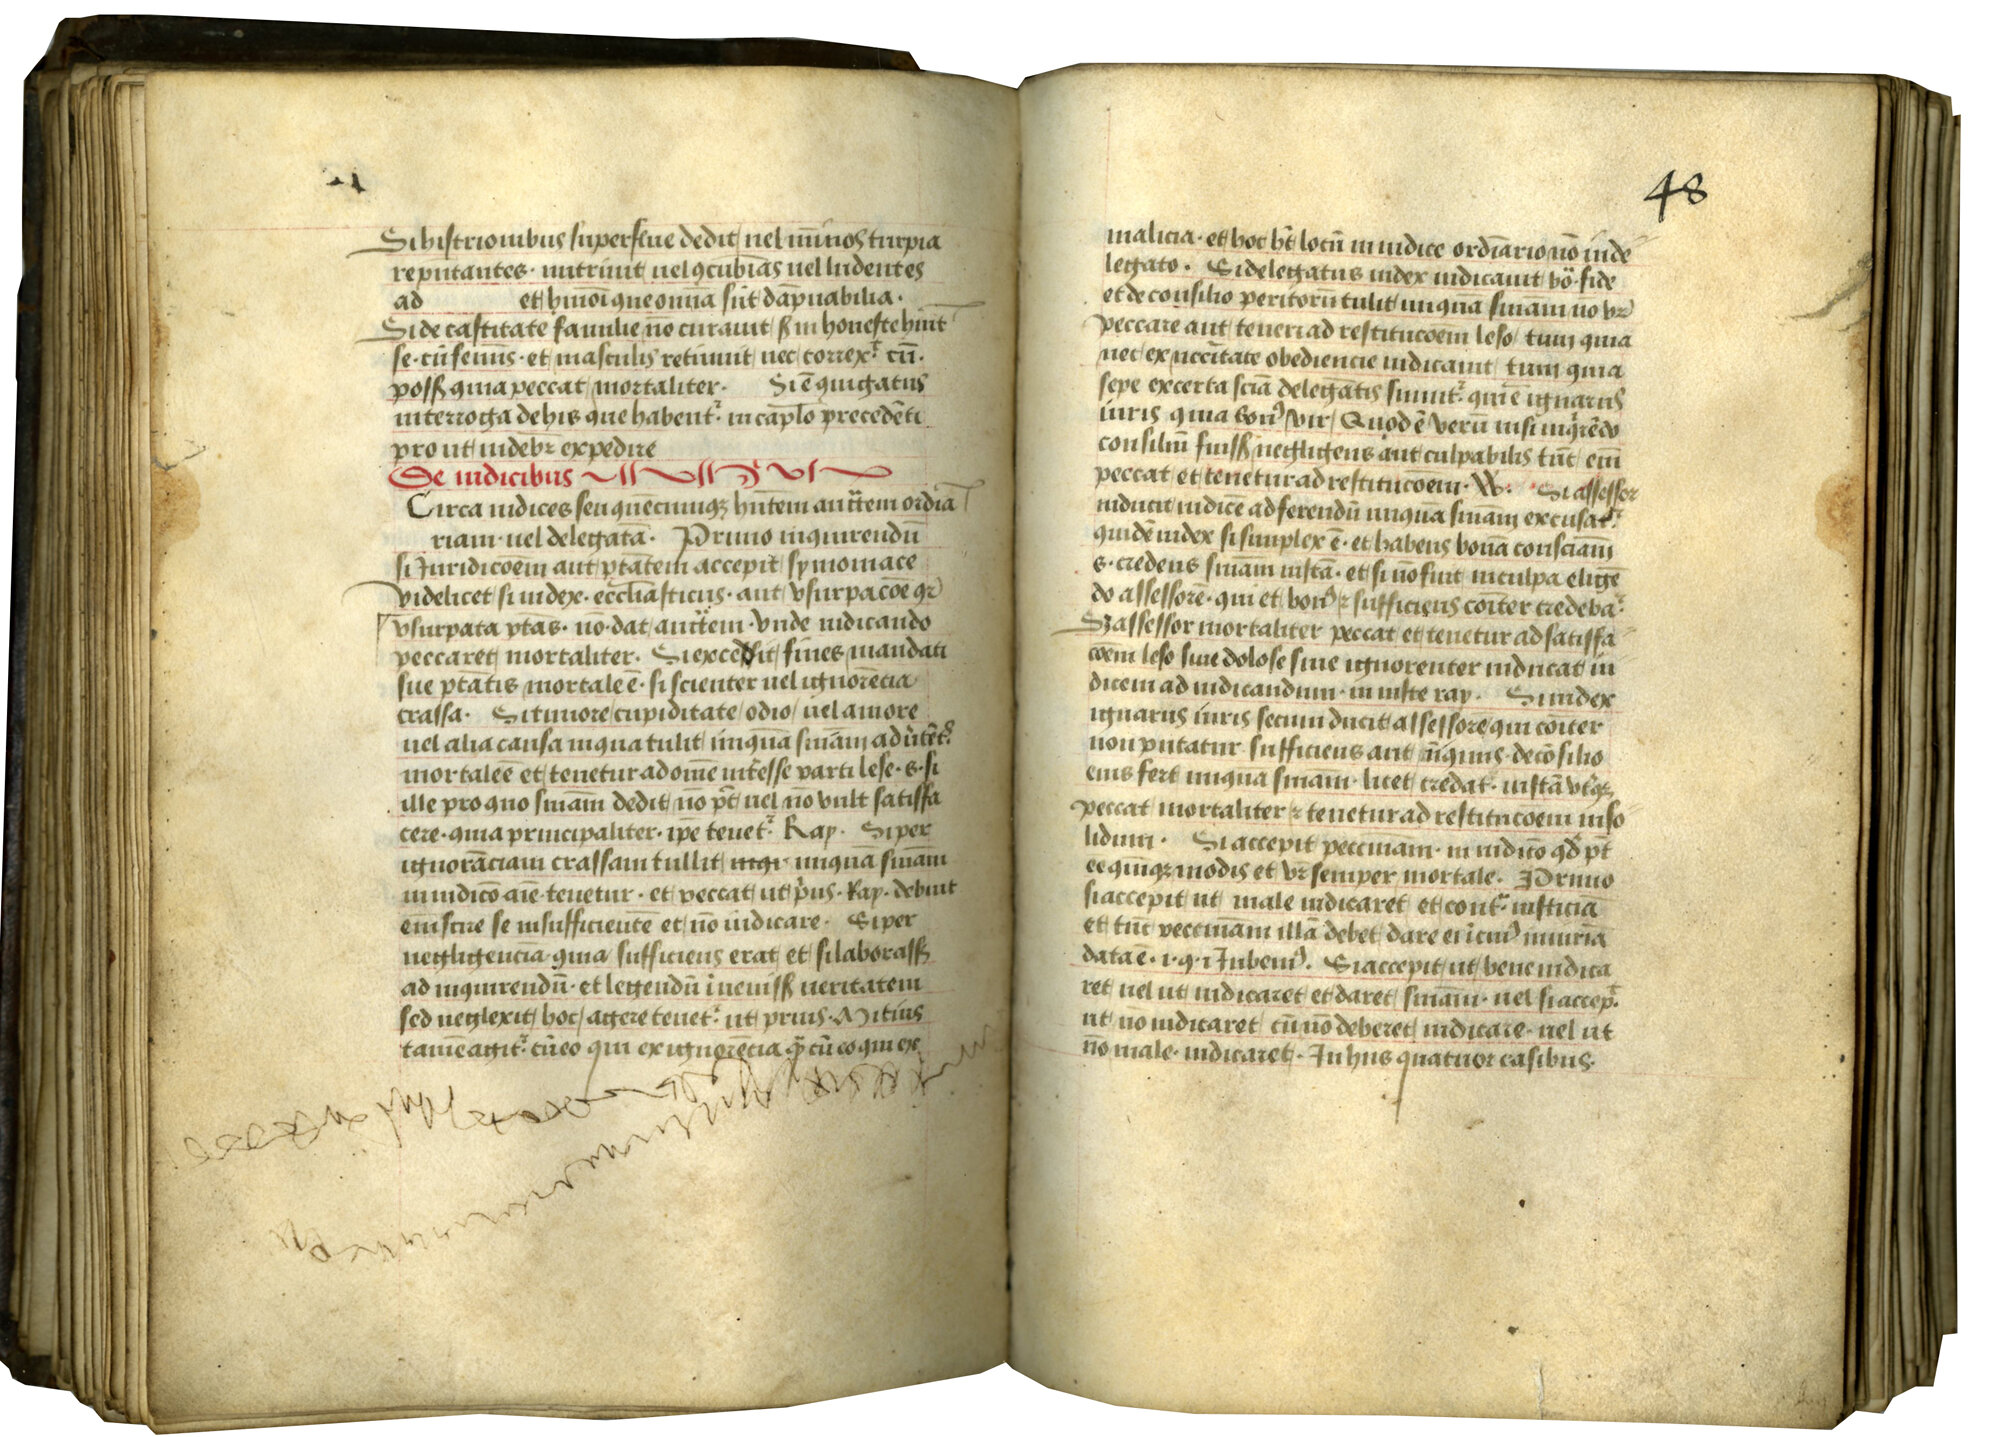 Si histrionibus superflue dedit uel mimos turpia
reputantes · nutriuit uel ꝯcubiās uel ludentes
ad et hmōi que omnia sūt dāpnabilia ·
Si de castitate familie nō curauit ß inhoneste hūt
se · cū femīs · et masculis retinuit nec correxᷣ cū ·
posß quia peccat mortaliter · Si ē quigatus
interroga de his que habentᷣ in cap̄lo precedēti
prout uidebr expedire
De iudicibus
Circa iudices seu quēcumqꝫ hn̄tem auct̄tem ordīa
riam · uel delegatā · Primo inquirendū
si Juridicōem aut ptātem accepit symoniace
videlicet si iudex · eccl̄iasticus · aut vsurpacōe qr
vsurpata ptas · nō · dat auct̄tem · vnde iudicando
peccaret mortaliter · Si excessit fines mandati
sue ptātis mortale ē · si scienter uel ignorēcia
crassa · Si timore cupiditate odio uel amore
uel alia causa in qua tulit iniquā sniam
mortale ē et tenetur ad om̄e int̄esse parti lese · s · si
ille pro quo sniām dedit nō pt̄ uel nō vult satisfa
cere · quia principaliter · ip̄e tenetᷣ Ray · Si per
ignorāciam crassam tullit iniquā sniām
in iudicō aīe tenetur · et peccat ut pi᷑us · Ray · debuit
em scire se insufficientē et nō iudicare · Si per
negligenciā quia sufficiens erat et si laborasß
ad inquirendū · et legendū īuenisß ueritatem
sed neglexit hoc agere tenetᷣ ut prius · Mitius
tamē agitᷣ cū eo qui ex ignorēcia q̄ cū eo qui ex
48
malicia · et hoc ht̄ locū in iudice ordīario nō in de
legato · Si delegatus iudex iudicauit bō · fide
et de consilio peritorū tulit iniquā sniam nō vr
peccare aut teneri ad restitucōem leso tum quia
nec ex nccītate obediencie iudicauit tum quia
sepe ex certa sciā delegātis sumitᷣ qui ē ignarus
iuris quia bon᷒ vir Quod ē verū nisi inqᷣrēdo
consiliū fuisß negligens aut culpabilis tūc em̄
peccat et tenetur ad restitucōem · W · Si assessor
inducit iudicē ad ferendū iniquā sniām excusatᷣ
quidē iudex si simplex ē · et habens bonā consciām
s · credens sniām iustā · et si nō fuit in culpa eligē
do assessorē · qui et bon᷒ ⁊ sufficiens cōiter credebaᷣ
Sꝫ assessor mortaliter peccat et tenetur ad satisfa
cōem leso siue dolose siue ignorenter inducat iu
dicem ad iudicandum · iniuste ray · Si iudex
ignarus iuris secum ducit assessorē qui cōiter
non putatur sufficiens aut de cōsilio
eius fert iniquā sniām · licet credat · iustā vtiqꝫ
peccat mortaliter ⁊ tenetur ad restitucōem inso
lidum · Si accepit peccuniam · in iudicō qd̄ pt̄
ēe quīqꝫ modis et vr semper mortale · Primo
si accepit ut male iudicaret et contᷣ iusticiā
et tūc peccuniam illā debet dare ei cui᷒ iniuriā
data ē · 1 · q · 1 Jubem᷒ · Si accepit ut bene iudica
ret uel ut iudicaret et daret sniām · uel si accepᷣ
ut nō iudicaret cū nō deberet iudicare · uel ut
nō male · iudicaret · In hiis quatuor casibus ·